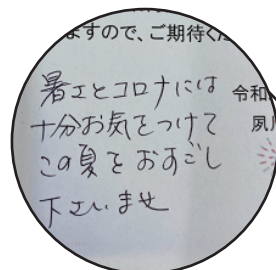 ますので、ご期待くだ
暑さとコロナには
十分お気をつけて
この夏をおすごし
下さいませ
令和
夙